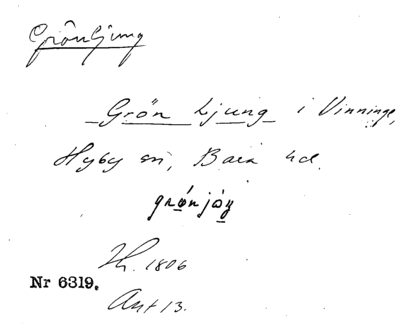 Grönljung
Grön Ljung i Vinninge,
Hyby sn, Bara hd.
Th. 1806
Nr 6319.
Ant 13.